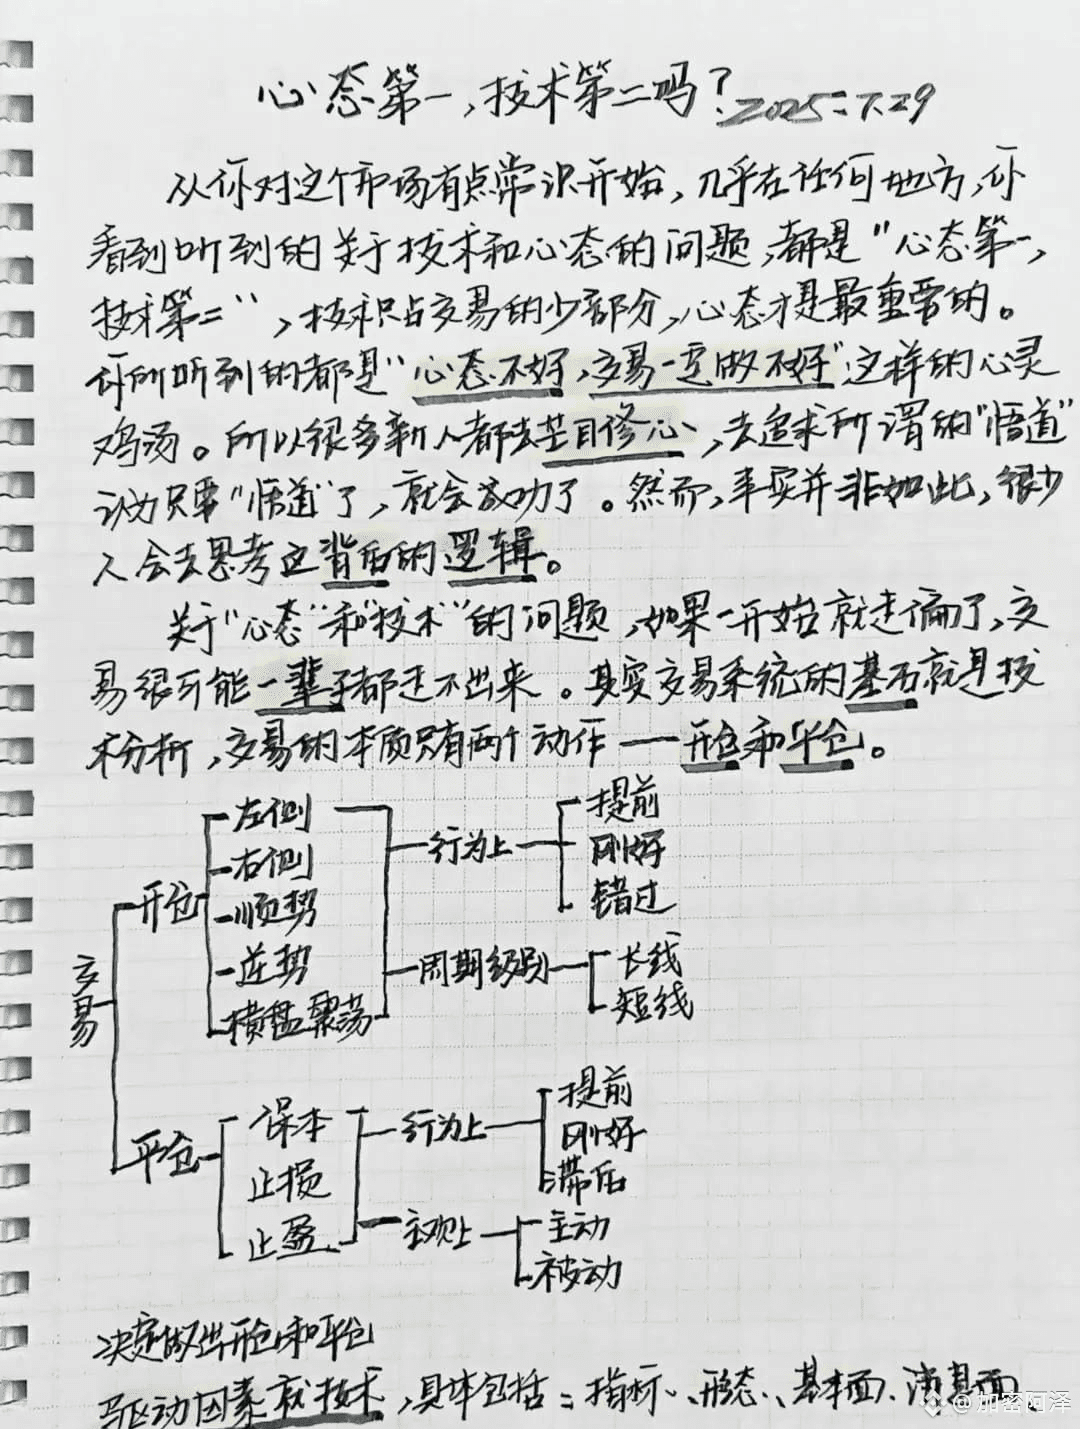 心态第一,技术第二吗?2025:7.29
从你对这个市场有点常识开始,几乎在任何地方,你
看到听到的关于技术和心态的问题,都是"心态第一,
技术第二",技术只占交易的少部分,心态才是最重要的。
你所听到的都是"心态不好,交易一定做不好"这样的心灵
鸡汤。所以很多新人都去盲目修心,去追求所谓的"悟道"
认为只要"悟道"了,就会成功了。然而,事实并非如此,很少
人会去思考这背后的逻辑。
关于"心态"和"技术"的问题,如果一开始就走偏了,交
易很可能一辈子都走不出来。其实交易系统的基石就是技
术分析,交易的本质只有两个动作——开仓和平仓。
交易
开仓
左侧
右侧
顺势
逆势
横盘震荡
行为上
提前
刚好
错过
周期级别
长线
短线
平仓
保本
止损
止盈
行为上
提前
刚好
滞后
主观上
主动
被动
决定做出开仓和平仓
驱动因素就技术,具体包括:指标、形态、基本面、消息面、
@加密阿泽